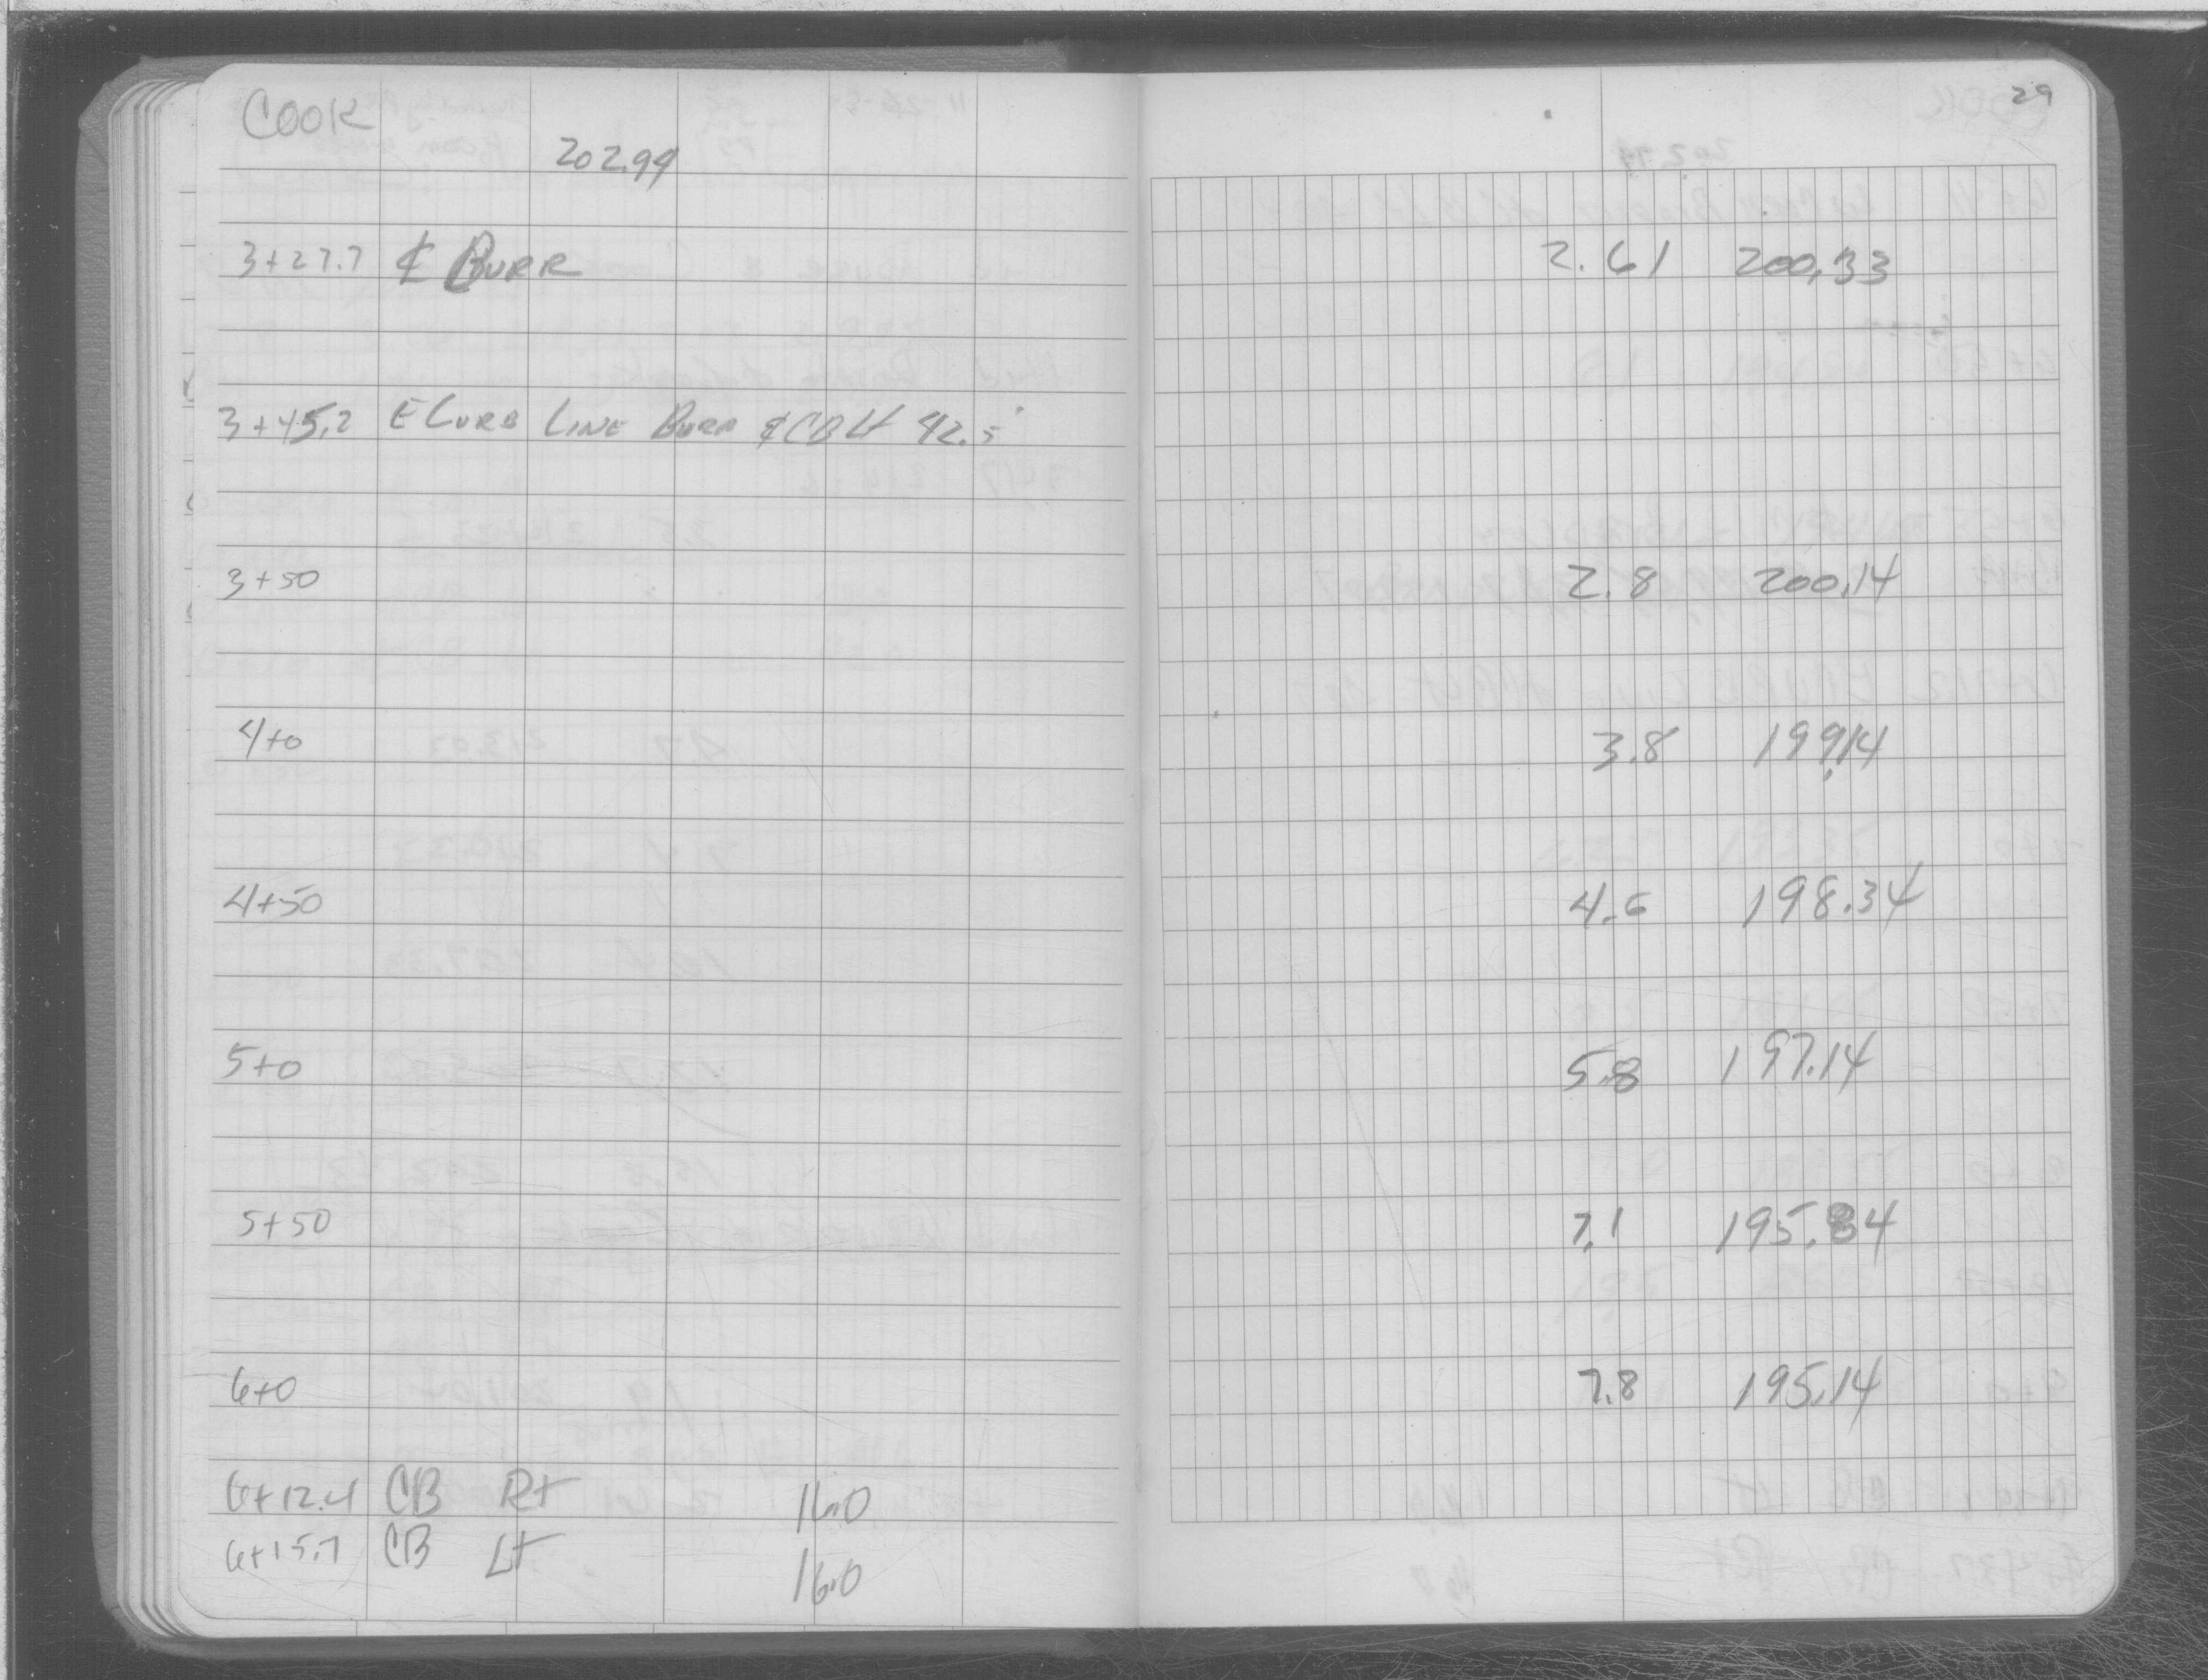 COOK 29
202.94
3+27.7 ℄ BURR 2.61 200.33
3+45.2 E CURB LINE BURR ℄ CB Lt 42.5'
3+50 2.8 200.14
4+0 3.8 199.14
4+50 4.6 198.34
5+0 5.8 197.14
5+50 7.1 195.84
6+0 7.8 195.14
6+12.4 CB Rt 16.0
6+15.7 CB Lt 16.0